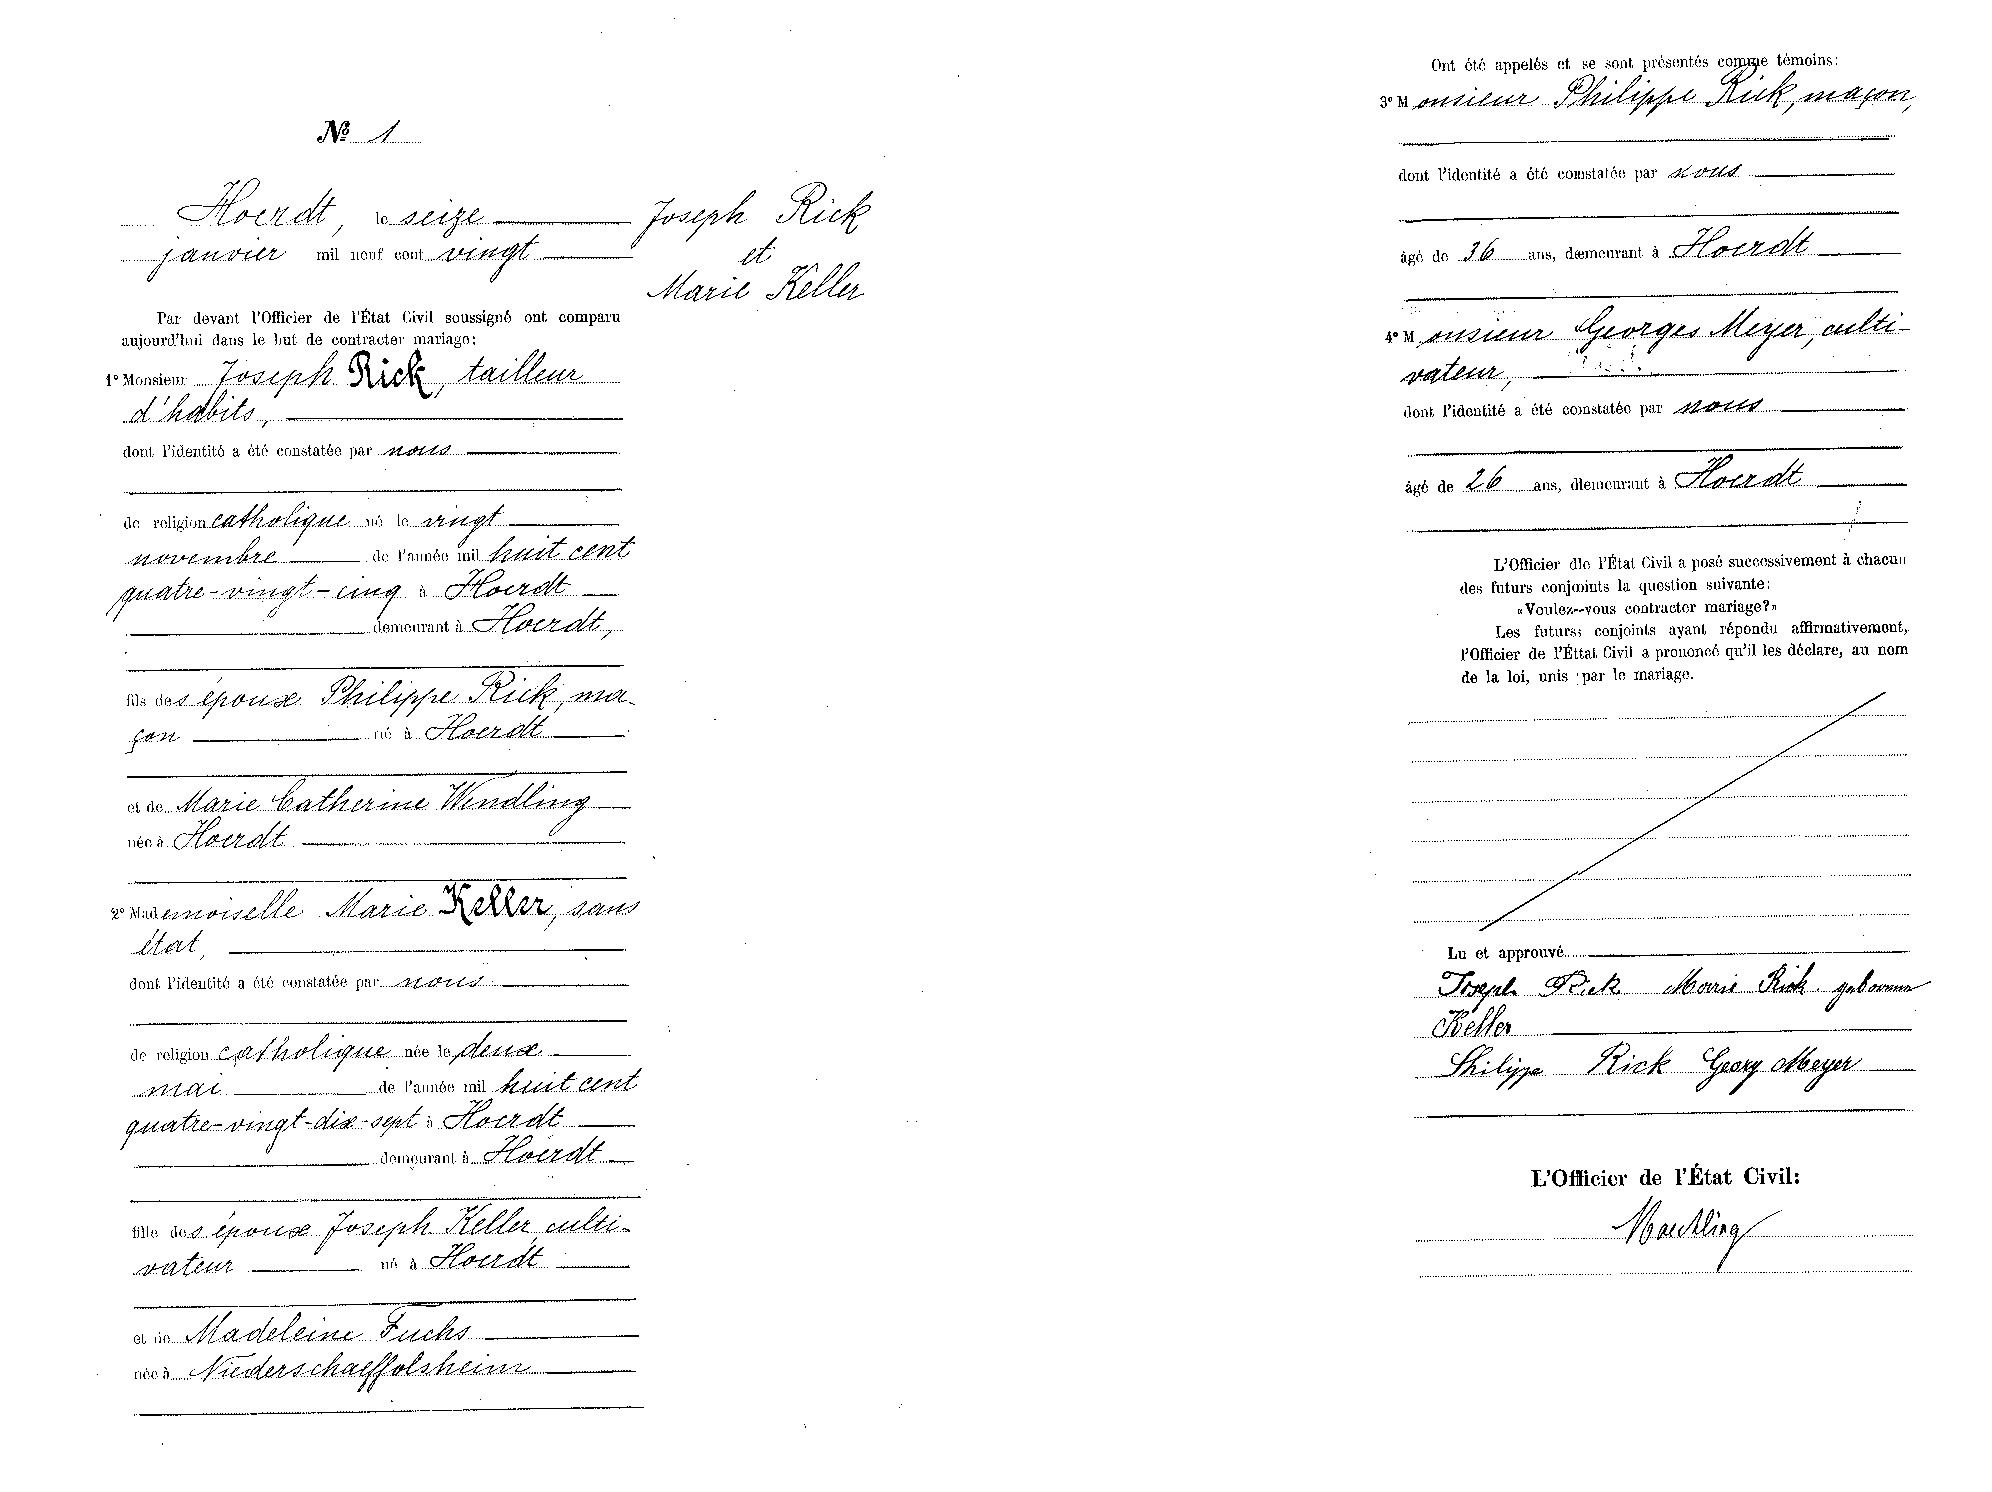 № 1
Hoerdt, le seize
janvier mil neuf cent vingt
Joseph Rick
et
Marie Keller
Par devant l'Officier de l'État Civil soussigné ont comparu
aujourd'hui dans le but de contracter mariage:
1° Monsieur Joseph Rick, tailleur
d'habits,
dont l'identité a été constatée par nous
de religion catholique né le vingt
novembre de l'année mil huit cent
quatre-vingt-cinq à Hoerdt
demeurant à Hoerdt,
fils des époux Philippe Rick, ma-
çon né à Hoerdt
et de Marie Catherine Wendling
née à Hoerdt
2° Mademoiselle Marie Keller, sans
état,
dont l'identité a été constatée par nous
de religion catholique née le deux
mai de l'année mil huit cent
quatre-vingt-dix-sept à Hoerdt
demeurant à Hoerdt
fille des époux Joseph Keller, culti-
vateur né à Hoerdt
et de Madeleine Fuchs
née à Niederschaeffolsheim
Ont été appelés et se sont présentés comme témoins:
3° Monsieur Philippe Rick, maçon,
dont l'identité a été constatée par nous
âgé de 36 ans, demeurant à Hoerdt
4° Monsieur Georges Meyer, culti-
vateur,
dont l'identité a été constatée par nous
âgé de 26 ans, demeurant à Hoerdt
L'Officier de l'État Civil a posé successivement à chacun
des futurs conjoints la question suivante:
«Voulez-vous contracter mariage?»
Les futurs conjoints ayant répondu affirmativement,
l'Officier de l'État Civil a prononcé qu'il les déclare, au nom
de la loi, unis par le mariage.
Lu et approuvé
Joseph Rick Marie Rick geborene
Keller
Philipp Rick Georg Meyer
L'Officier de l'État Civil: